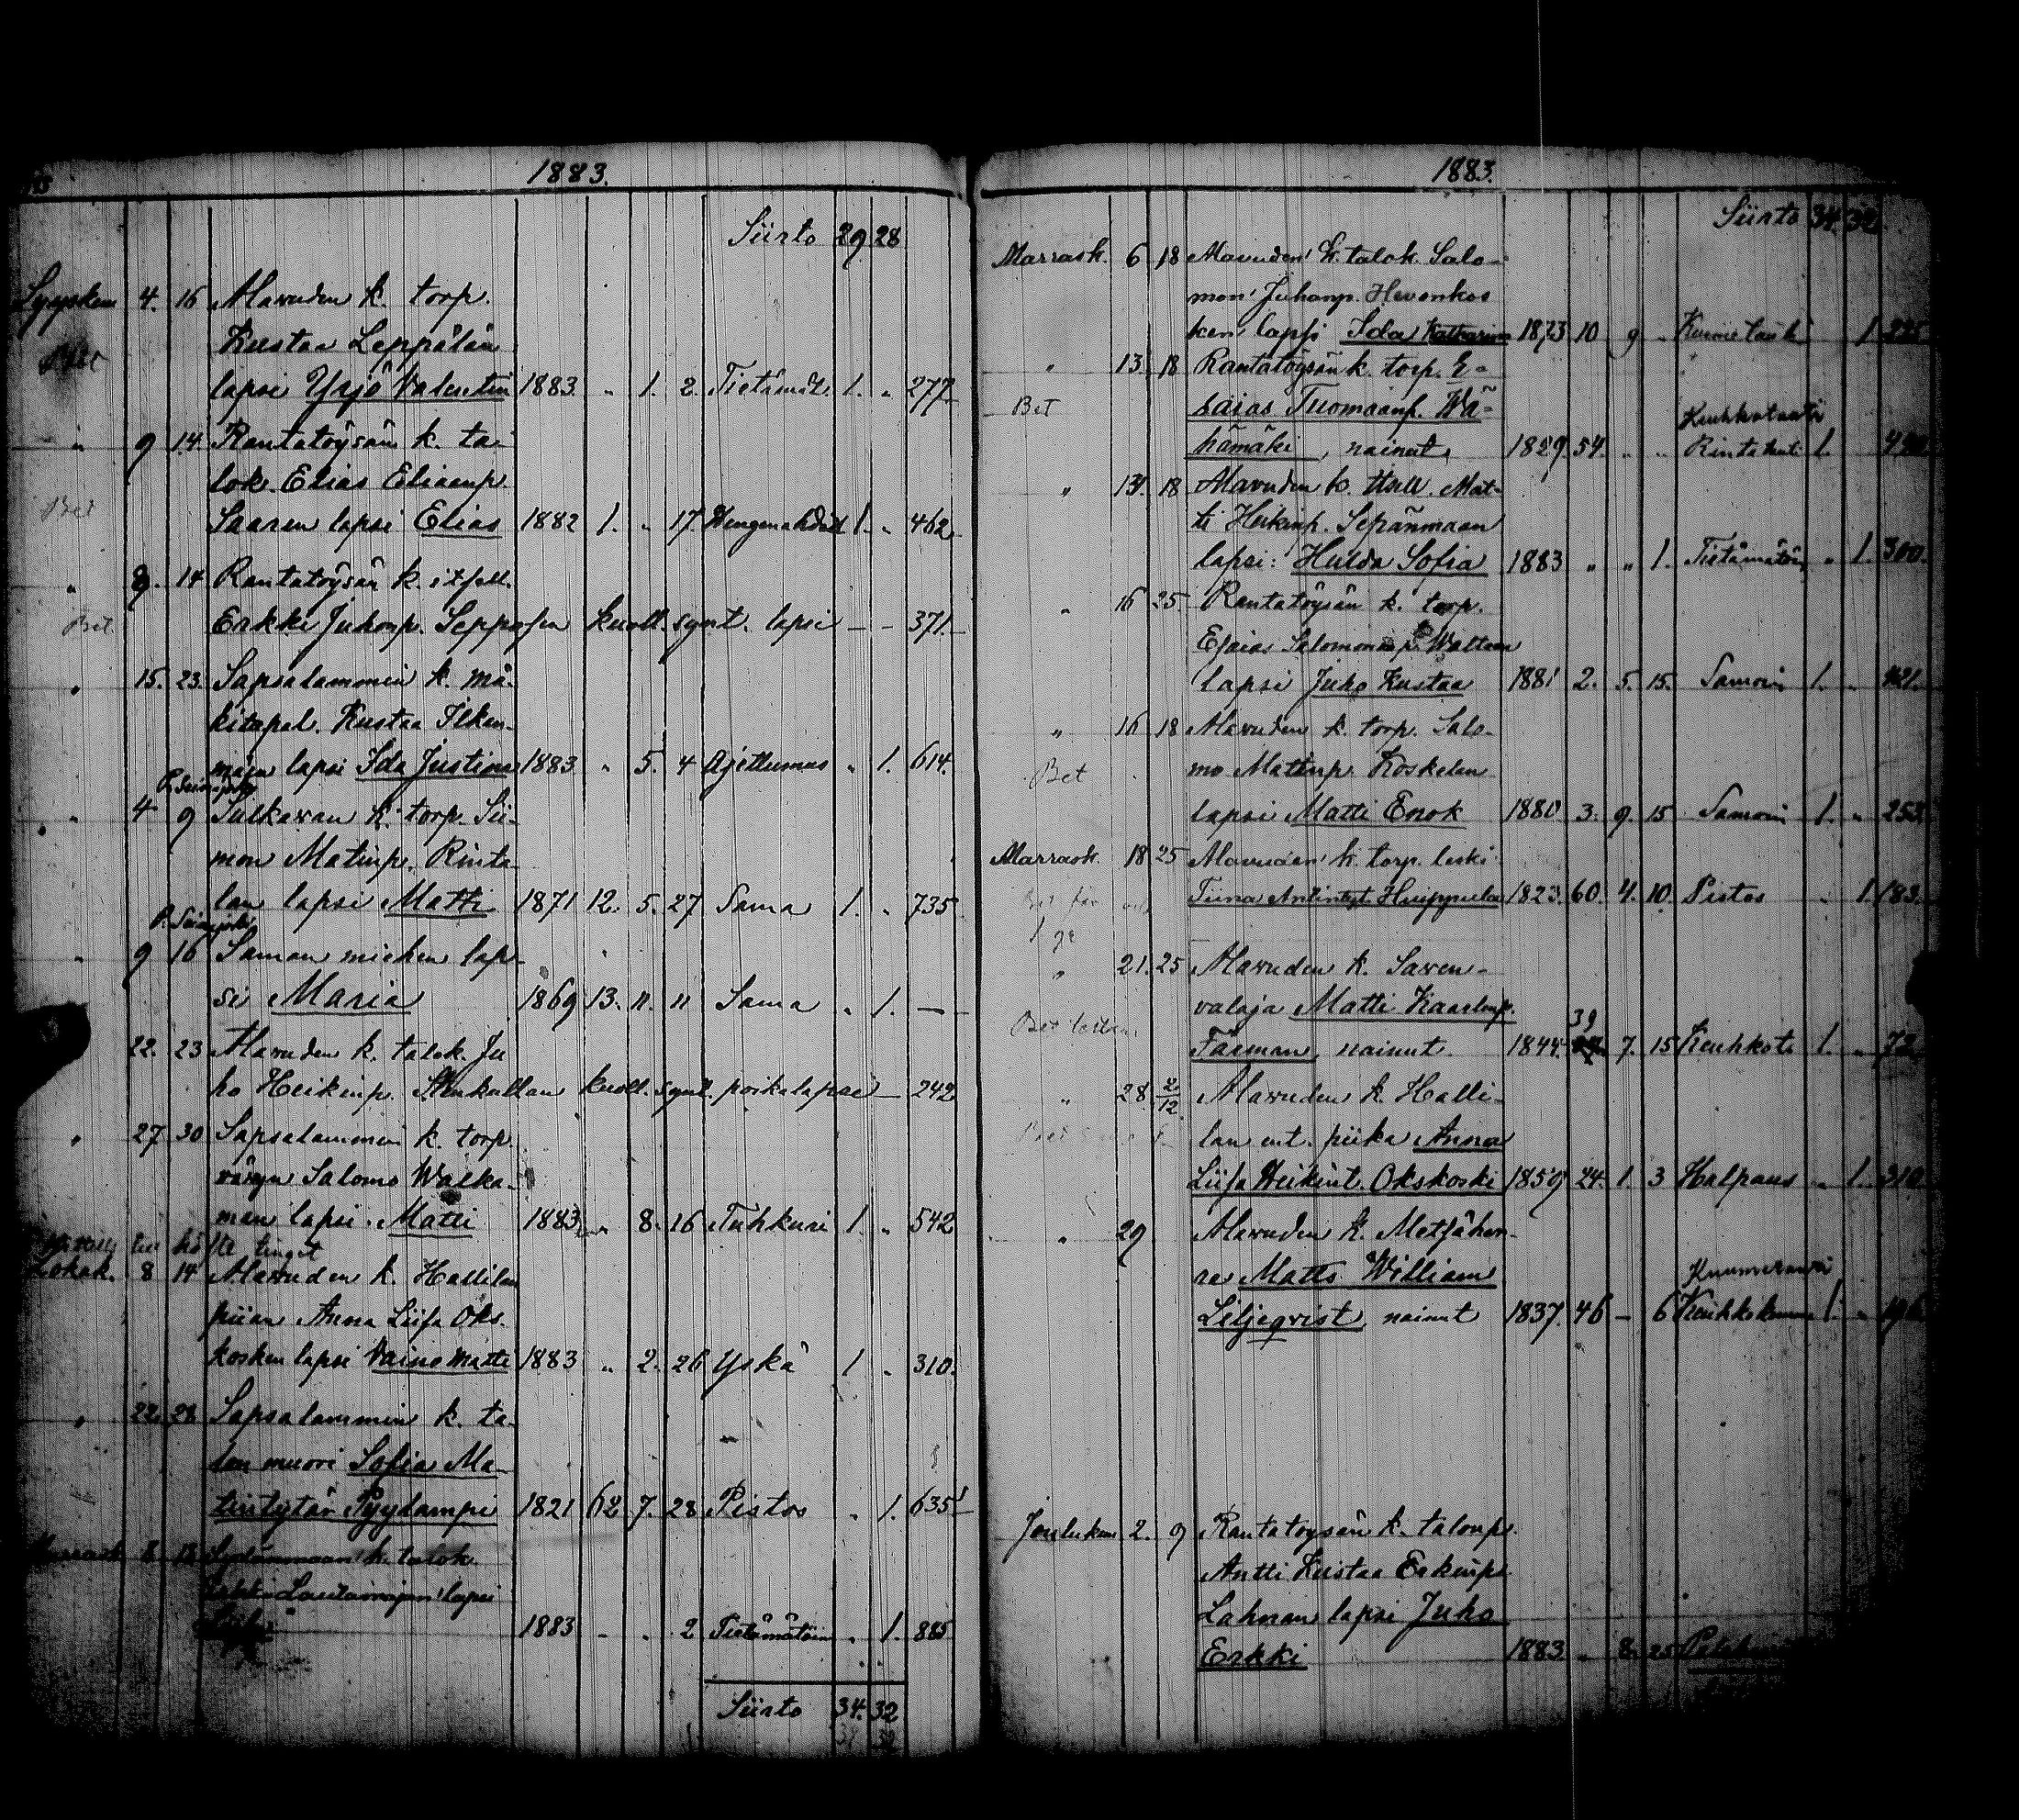 1883.
Siirto 29 28
Syysken 4. 16 Alavuden k. torp.
Kustaa Leppälän
lapsi Yrjö Valentin 1883. „ 1. 2. Tietämät. 1. „ 277
„ 9 14. Rantatöysän k. ta-
lok. Elias Eliaanp.
Bet
Saaren lapsi Elias 1882 1. „ 17. Hengenahdist 1. „ 462
„ 9. 14 Rantatöysän k. itsell.
Bet. Erkki Juhonp. Seppäsen kuoll. synt. lapsi – – 371.
„ 15. 23. Sapsalammin k. mä-
kitupal. Kustaa Ilken-
majan lapsi Ida Justiina 1883 „ 5. 4 Ajettumus „ 1. 614.
P. Seinäjoki
„ 4 9 Sulkavan k. torp. Sii-
mon Matinp. Rinta-
lan lapsi Matti 1871 12. 5. 27 Sama 1. „ 735
P. Seinäjoki
„ 9 16 Saman miehen lap-
si Maria 1869 13. 11. 11 Sama „ 1. —
22. 23 Alavuden k. talok. Ju
ho Heikinp. kuoll. synt. poikalapsi – 242
„ 27 30 Sapsalammin k. torp
Salomo Walka-
man lapsi Matti 1883 „ 8. 16 Tuhkuri 1 „ 542
Lokak. 8 14 Alavuden k. Hallilan
piian Anna Liisa Oks-
kosken lapsi Väinö Matti 1883 „ 2. 26 Yskä 1 „ 310.
„ 22. 28 Sapsalammin k. ta-
lon muori Sofia Ma-
tintytär Pyylampi 1821 62 7. 28 Pistos „ 1. 635
Marrask 8 18 Sydänmaan k. talok.
Lautamajan lapsi
1883 – „ 2 Tietämätöin „ 1. 885
Siirto 34. 32
1883.
Siirto 34. 32
Marrask. 6 18 Alavuden k. talok. Salo-
mon Juhanp. Hevonkos
ken lapsi Ida Katharina 1873 10 9 „ 1 225
„ 13 18 Rantatöysän k. torp. E-
Bet saias Tuomaanp. Wä-
Keuhkotauti
hämäki, nainut 1829. 54. „ „ 1.
„ 13. 18 Alavuden k. Itsell. Mat-
ti Heikinp. Sepänmaan
lapsi: Hulda Sofia 1883 „ „ 1. Tietämätön „ 1. 300.
„ 16 25. Rantatöysän k. torp.
Esaias Salomoninp. Waltarin
lapsi Juho Kustaa 1881 2. 5. 15. Samoin 1. „ 421.
„ 16 18 Alavuden k. torp. Salo-
Bet mo Mattinp. Koskelan
lapsi Matti Enok 1880 3. 9. 15 Samoin 1. „ 253
Marrask. 18 25 Alavuden k. torp. leski
Tiina Antintyt. Huppula 1823. 60. 4. 10. Pistos „ 1. 183.
„ 21. 25 Alavuden k. Saven-
valaja Matti Kaarlenp.
39
Faeman, nainut 1844. 7. 15 Keuhkot. 1. „ 72
„ 28. 2/12 Alavuden k. Halli-
lan ent. piika Anna
Liisa Heikint. Okskoski 1859 24. 1. 3 Halpaus „ 1. 310
„ 29 Alavuden k. Metsäher-
ra Matts William
Liljeqvist, nainut 1837. 46 – 6 1. „
Jouluk. 2. 9 Rantatöysän k. talonp.
Antti Kustaa Erkinp.
Lahnan lapsi Juho
Erkki 1883. „ 8. 25